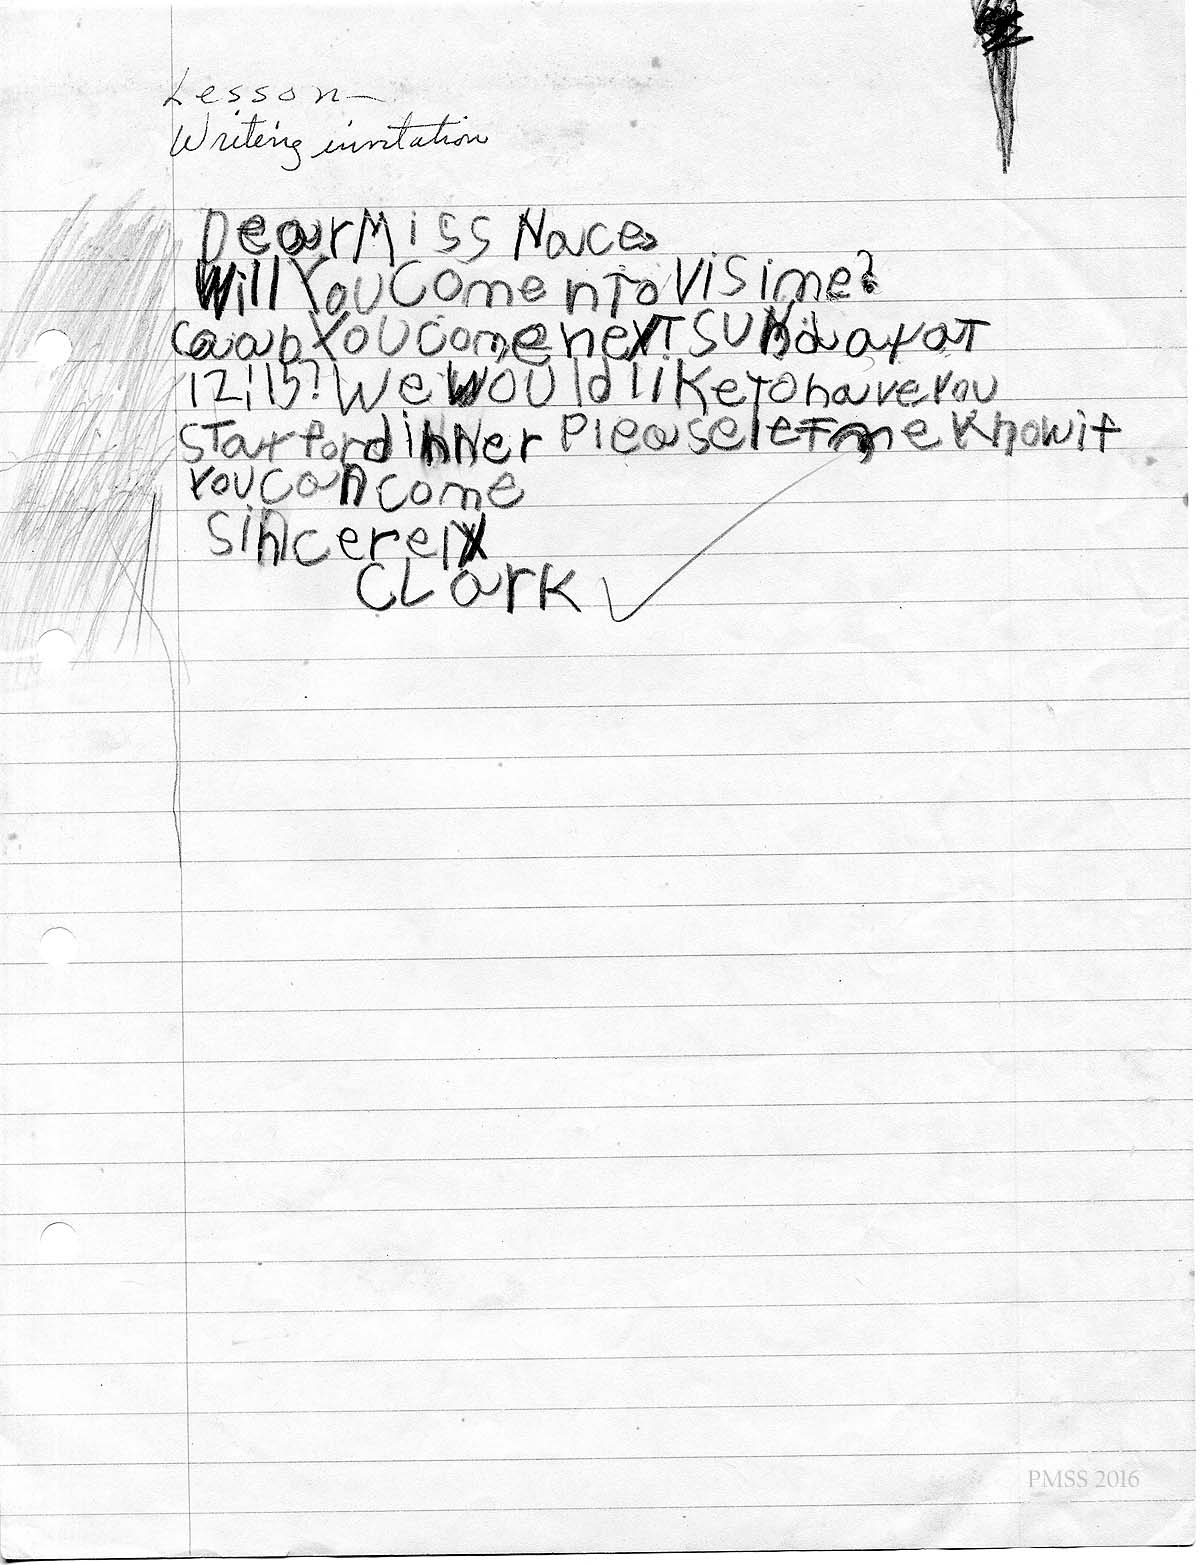 Lesson—
Writing invitation
Dear Miss Nace,
Will You Come n To Vis i me?
Caan You come next Sunday at
12:15? We Would like To have You
STay for dinner Please leT me Know if
You can come
Sincerely
CLark
PMSS 2016